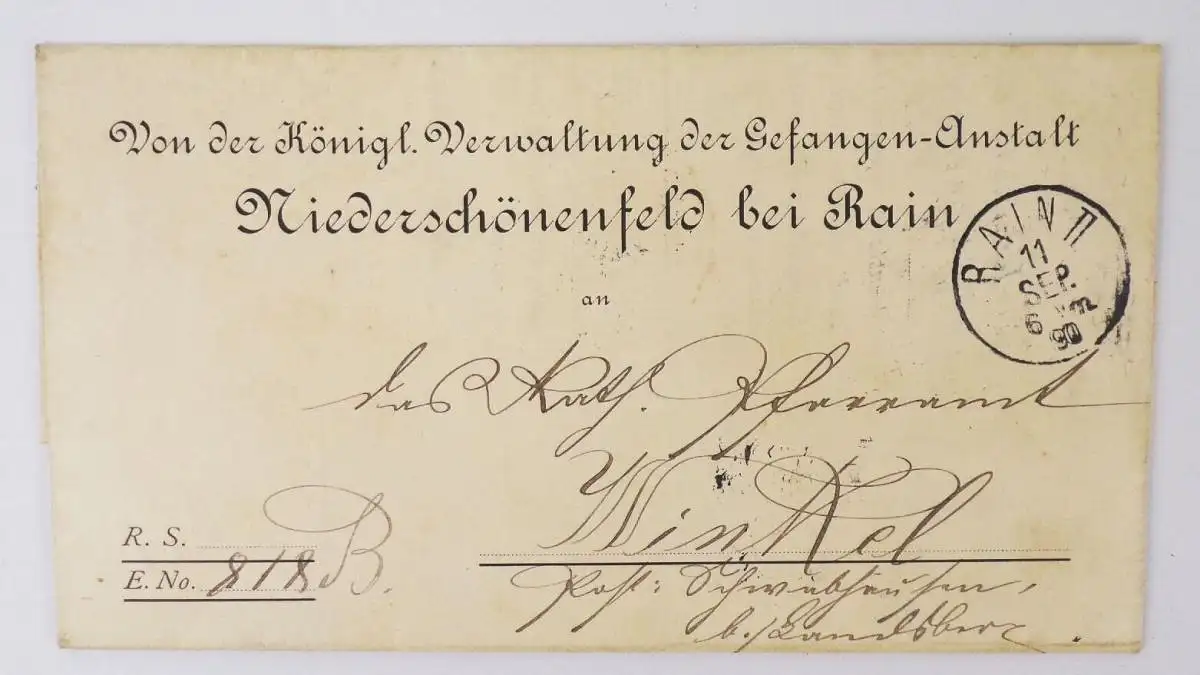 Von der Königl. Verwaltung der Gefangen-Anstalt
Niederschönenfeld bei Rain
RAIN II
11
SEP.
6
90
an
das Kath. Pfarramt
Winkel
R. S.
E. No. 818 B.
Post: Schwabhausen,
b./Landsberg.